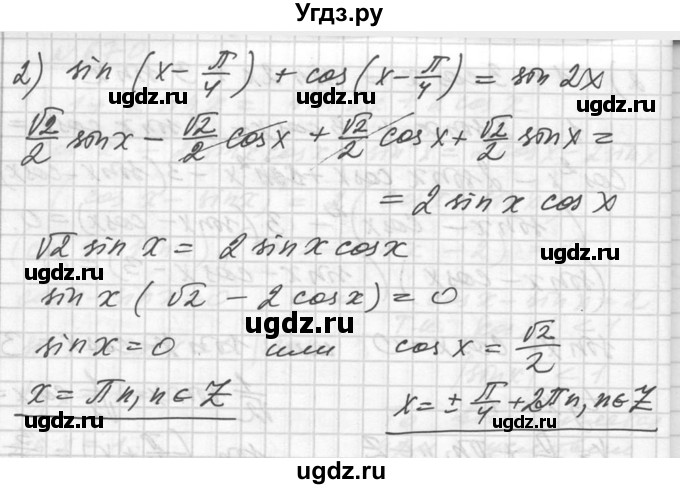 Угдз.ру
2) sin (x - π/4) + cos (x - π/4) = sin 2x
ugdz.ru ugdz.ru
√2/2 sin x - √2/2 cos x + √2/2 cos x + √2/2 sin x =
ugdz.ru
= 2 sin x cos x
√2 sin x = 2 sin x cos x
ugdz.ru ugdz.ru
sin x (√2 - 2 cos x) = 0
ugdz.ru
sin x = 0 или cos x = √2/2
x = πn, n ∈ Z x = ± π/4 + 2πn, n ∈ Z
ugdz.ru ugdz.ru
ugdz.ru